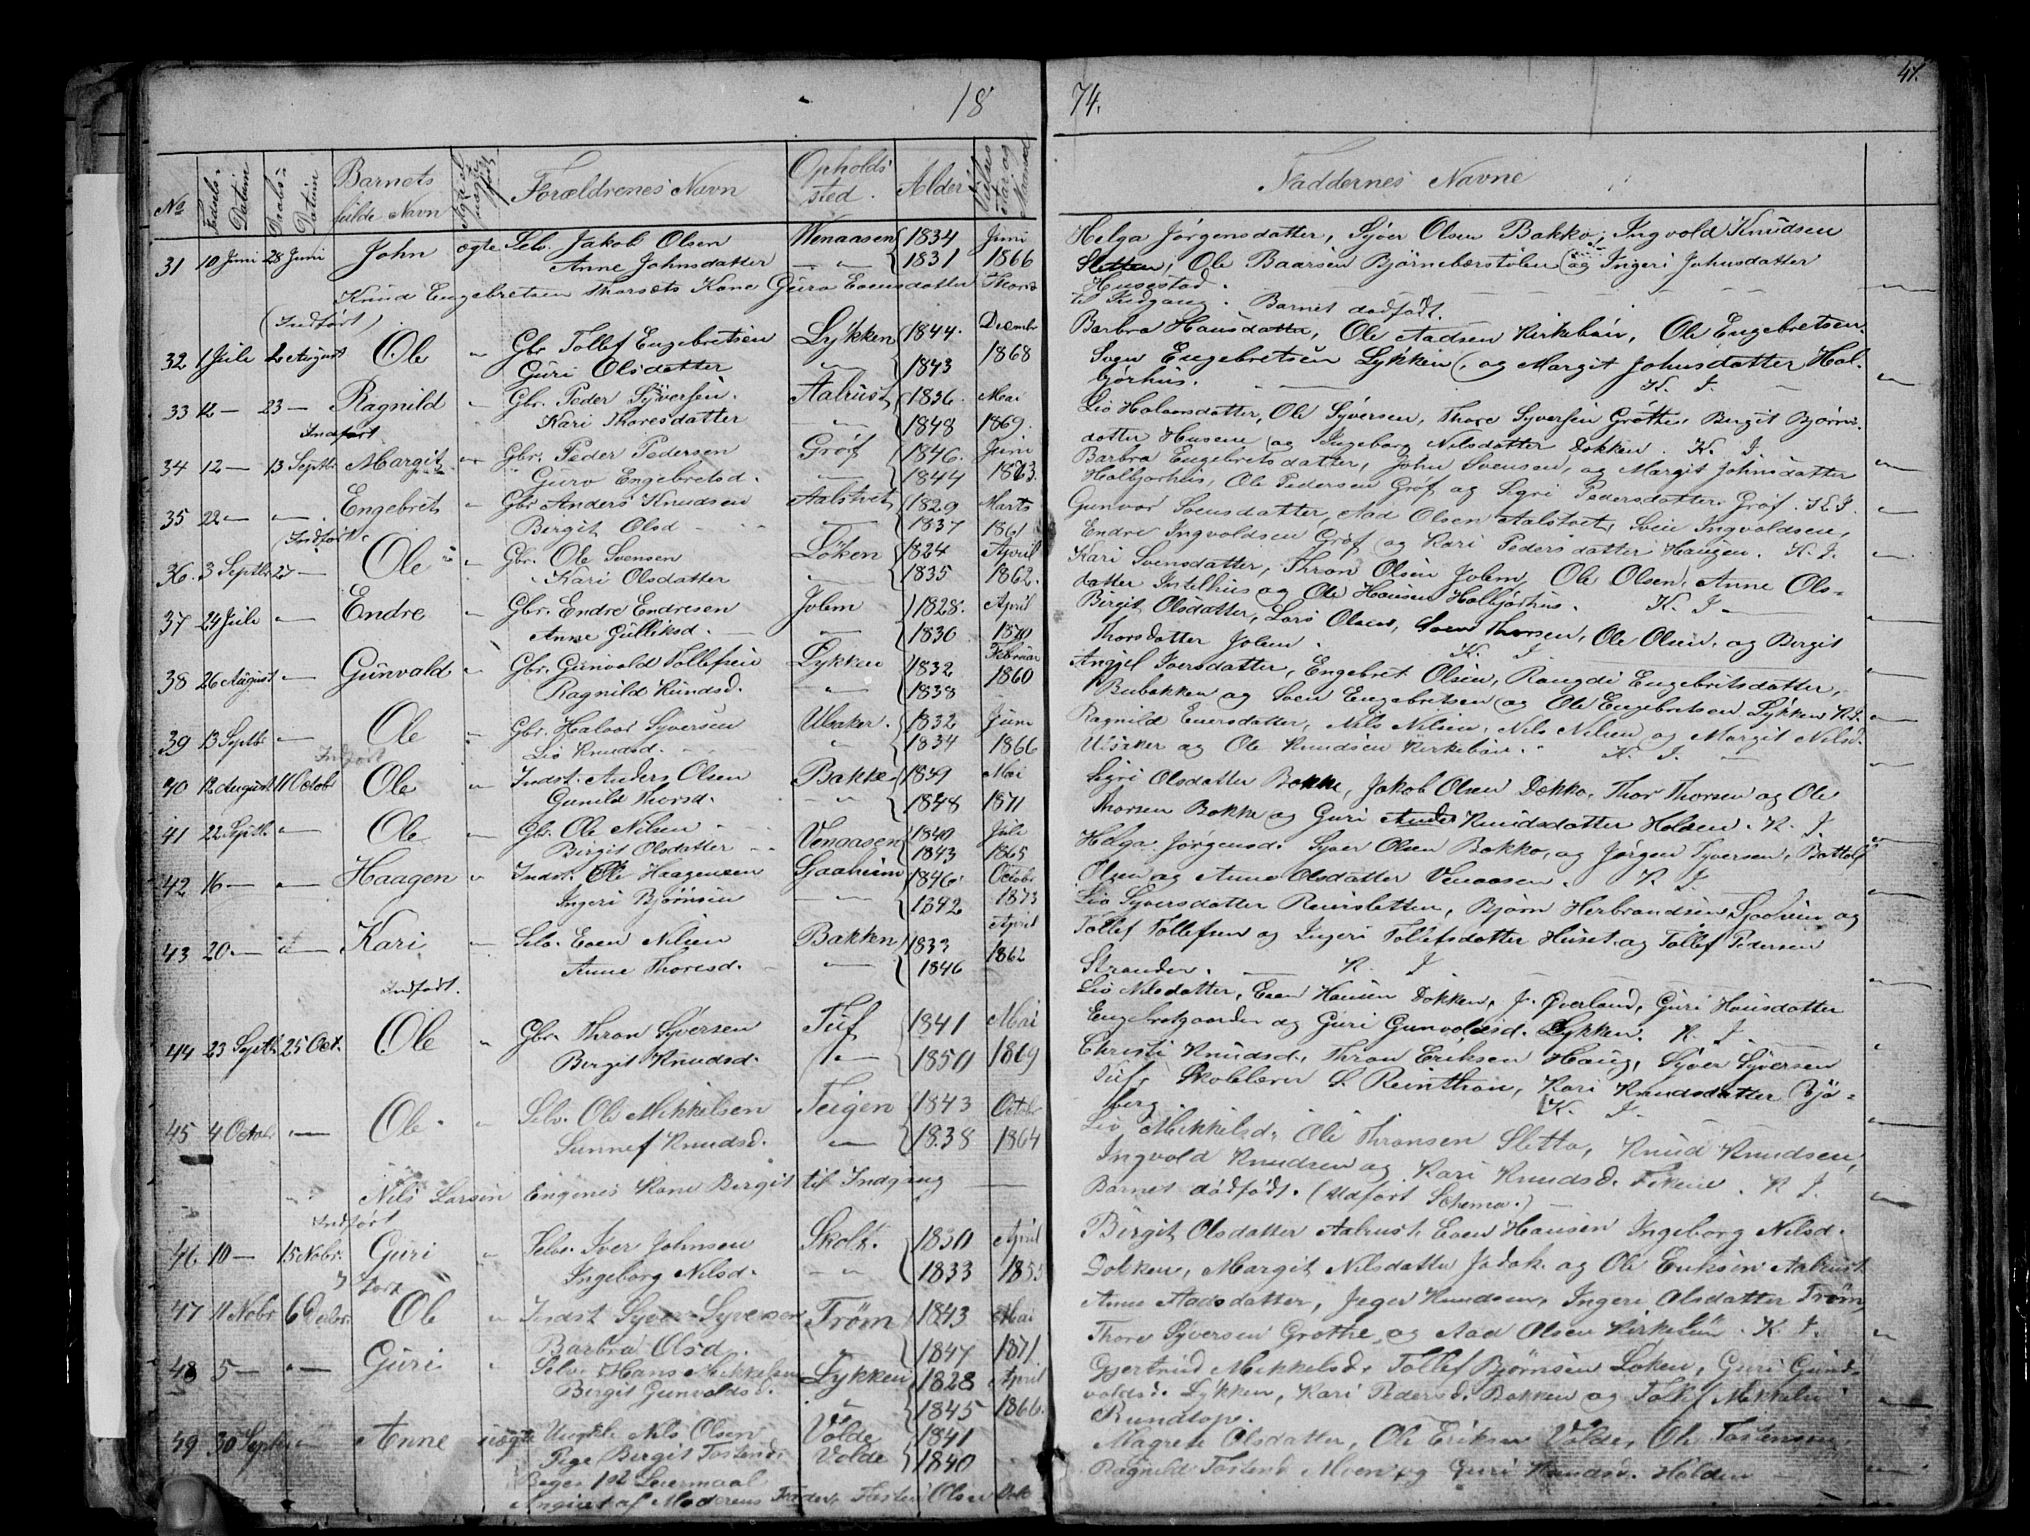 1874.
47.
No Fødsels-Datum Daabs-Datum Barnets fulde Navn Ægte el uægte født Forældrenes Navn Opholdssted. Alder Vielses Aar og Maaned
Faddernes Navne
31 10 Juni 28 Juni John ægte Selv. Jakob Olsen Wenaasen 1834 Juni
Anne Johnsdatter 1831 1866
Knud Engebretsen Thorsets Kone Guro Evensdatter
(Indført)
32 1 Juli 2 August Ole " Gbr Tollef Engebretsen Lykken 1844. Decembr
Guri Olsdatter " 1843 1868
33 12 — 23 — Ragnild " Gbr. Peder Syversen. Aalrust 1836. Mai
Kari Thoresdatter 1848 1869.
Indført
34 12 — 13 Septbr Margit " Gbr. Peder Pedersen Grøf 1846. Juni
Guro Engebretsd. 1844 1873.
35 22 — " Engebret " Gbr Anders Knudsen Aalstvet 1829 Marts
Birgit Olsd 1837 1861
(Indført.
36. 3 Septbr 27 — Ole " Gbr. Ole Svensen Løken 1824 April
Kari Olsdatter 1835 1862.
37 24 Juli " Endre " Gbr. Endre Endresen Jolem 1828. April
Anne Gulliksd. 1830 1870
38 26 August " Gunvald " Gbr. Gunvald Tollefsen Lykken 1832 Februar
Ragnild Knudsd. " 1838 1860
39 13 Septbr " Ole " Gbr. Halvor Syversen Ulsaker. 1832 Juni
Liv Knudsd. 1834 1866
Indført
40 12 August 11 Octobr Ole " Indst. Anders Olsen Bakke 1839 Mai
Gunild Thorsd. " 1848 1871
41 22 Septb. " Ole " Gbr. Ole Nilsen Venaasen 1840 Juli
Birgit Olsdatter 1843 1865
42 16 — " Haagen " Indst. Ole Haagensen Sjaaheim 1846 Octobr
Ingeri Bjørnsen 1842 1873
43 20 — " Kari " Selv. Even Nilsen Bakken 1833 April
Anne Thoresd. " 1846 1862
Indført.
44 23 Septb. 25 Oct. Ole " Gbr. Thron Syversen Tuf 1841 Mai
Birgit Knudsd. " 1850 1869
45 4 Octobr " Ole. " Selv. Ole Mikkelsen Teigen 1843 Octobr
Sunnef Knudsd. " 1838 1864
Nils Larsen Engenes Kone Birgit til Indgang
Indført
46. 10 — 15 Nobr. Guri " Selv. Iver Johnsen Skolt. 1830 April
Ingeborg Nilsd. 1833 1855
47 11 Nobr 6 Decbr. Ole " Indst Syver Syversen Trøm 1843 Mai
Barbra Olsd. 1847 1871.
48 5 — " Guri " Selv. Hans Mikkelsen Lykken 1828 April
Birgit Gunvaldsd. " 1845 1866.
49 30 Septb " Anne uægte Ungkle Nils Olsen Volde 1841
Pige Birgit Tostensd. Volde 1840
Beges 1ste Leiermaal
Angivet af Moderens Fader, Tosten Olsen
Helga Jørgensdatter, Syver Olsen Bakko, Ingvold Knudsen
Sletten, Ole Baarsen Bjørnebærstølen (og Ingeri Johnsdatter
Husestad.
til Indgang. Barnet dødfødt.
Barbra Hansdatter, Ole Aadsen Kirkebøn, Ole Engebretsen.
Engebretsen Lykken (, og Margit Johnsdatter Hol-
bjørhus. K. I.
Liv Halvorsdatter, Ole Syversen, Thore Syversen Grøthe, Birgit Bjørns-
datter Husene (og Ingeborg Nilsdatter Dokken. K. I.
Barbra Engebretsdatter, John Svensen, og Margit Johnsdatter
Holbjorhus, Ole Pedersen Grøf og Sigri Pedersdatter Grøf. K. I.
Gunvor Svensdatter, Aad Olsen Aalstvet, Sven Ingvoldsen,
Endre Ingvoldsen Grøf (og Kari Pedersdatter Haugen. K. I.
Kari Svensdatter, Thron Olsen Jolem, Ole Olsen, Anne Ols-
datter Intelhus og Ole Hansen Holbjørhus. K. I.
Birgit Olsdatter, Lars Olsen, Sven Thorsen, Ole Olsen, og Birgit
Thorsdatter Jolem. K. I.
Angjel Iversdatter, Engebret Olsen, Rangdi Engebretsdatter,
Bubakken og Sven Engebretsen (og Ole Engebretsen Lykken K. I.
Ragnild Enersdatter, Nils Nilsen, Nils Nilsen og Margit Nilsd.
Ulsaker og Ole Knudsen Kirkebøn. K. I.
Sigri Olsdatter Bakke, Jakob Olsen Dokko, Thor Thorsen og Ole
Thorsen Bakke og Guri Knudsdatter Holden. K. I.
Helga Jørgensd. Syver Olsen Bakko, og Jørgen Syversen, Bottolf
Olsen og Anne Olsdatter Venaasen. K. I.
Liv Syversdatter Reiersletten, Bjørn Herbrandsen Sjaaheim og
Tollef Tollefsen og Ingeri Tollefsdatter Huset og Tollef Pedersen
Strander. K. I.
Liv Nilsdatter, Even Hansen Dokken, J. Øverland, Guri Hansdatter
Engebretgaarden og Guri Gunvoldsd. Lykken. K. I.
Christi Knudsd. Thron Eriksen Haug, Syver Syversen
Tuf, Skolelærer S. Reinthon, Kari Knudsdatter Bjø-
berg. K. I.
Liv Mikkelsd. Ole Thronsen Sletto, Knud Knudsen,
Ingvold Knudsen og Kari Knudsd. K. I.
Barnet dødfødt. (Udført Schema.)
Birgit Olsdatter Aalrust, Even Hansen Ingeborg Nilsd.
Dokken, Margit Nilsdatter og Ole Eriksen Aalrust
Anne Aadsdatter, Knudsen, Ingeri Olsdatter Trøm,
Thore Syversen Grøthe, og Aad Olsen Kirkebøn. K. I.
Gjertrud Mikkelsd. Tollef Bjørnsen Løken, Guri Gund-
valdsd. Lykken, Kari Pedersd. Bakken og Tollef Mikkelsen
Rundtop.
Magrete Olsdatter, Ole Eriksen Volde, Ole Tostensen,
Ragnild Tostensd Moen, og Guri Knudsd. Holden